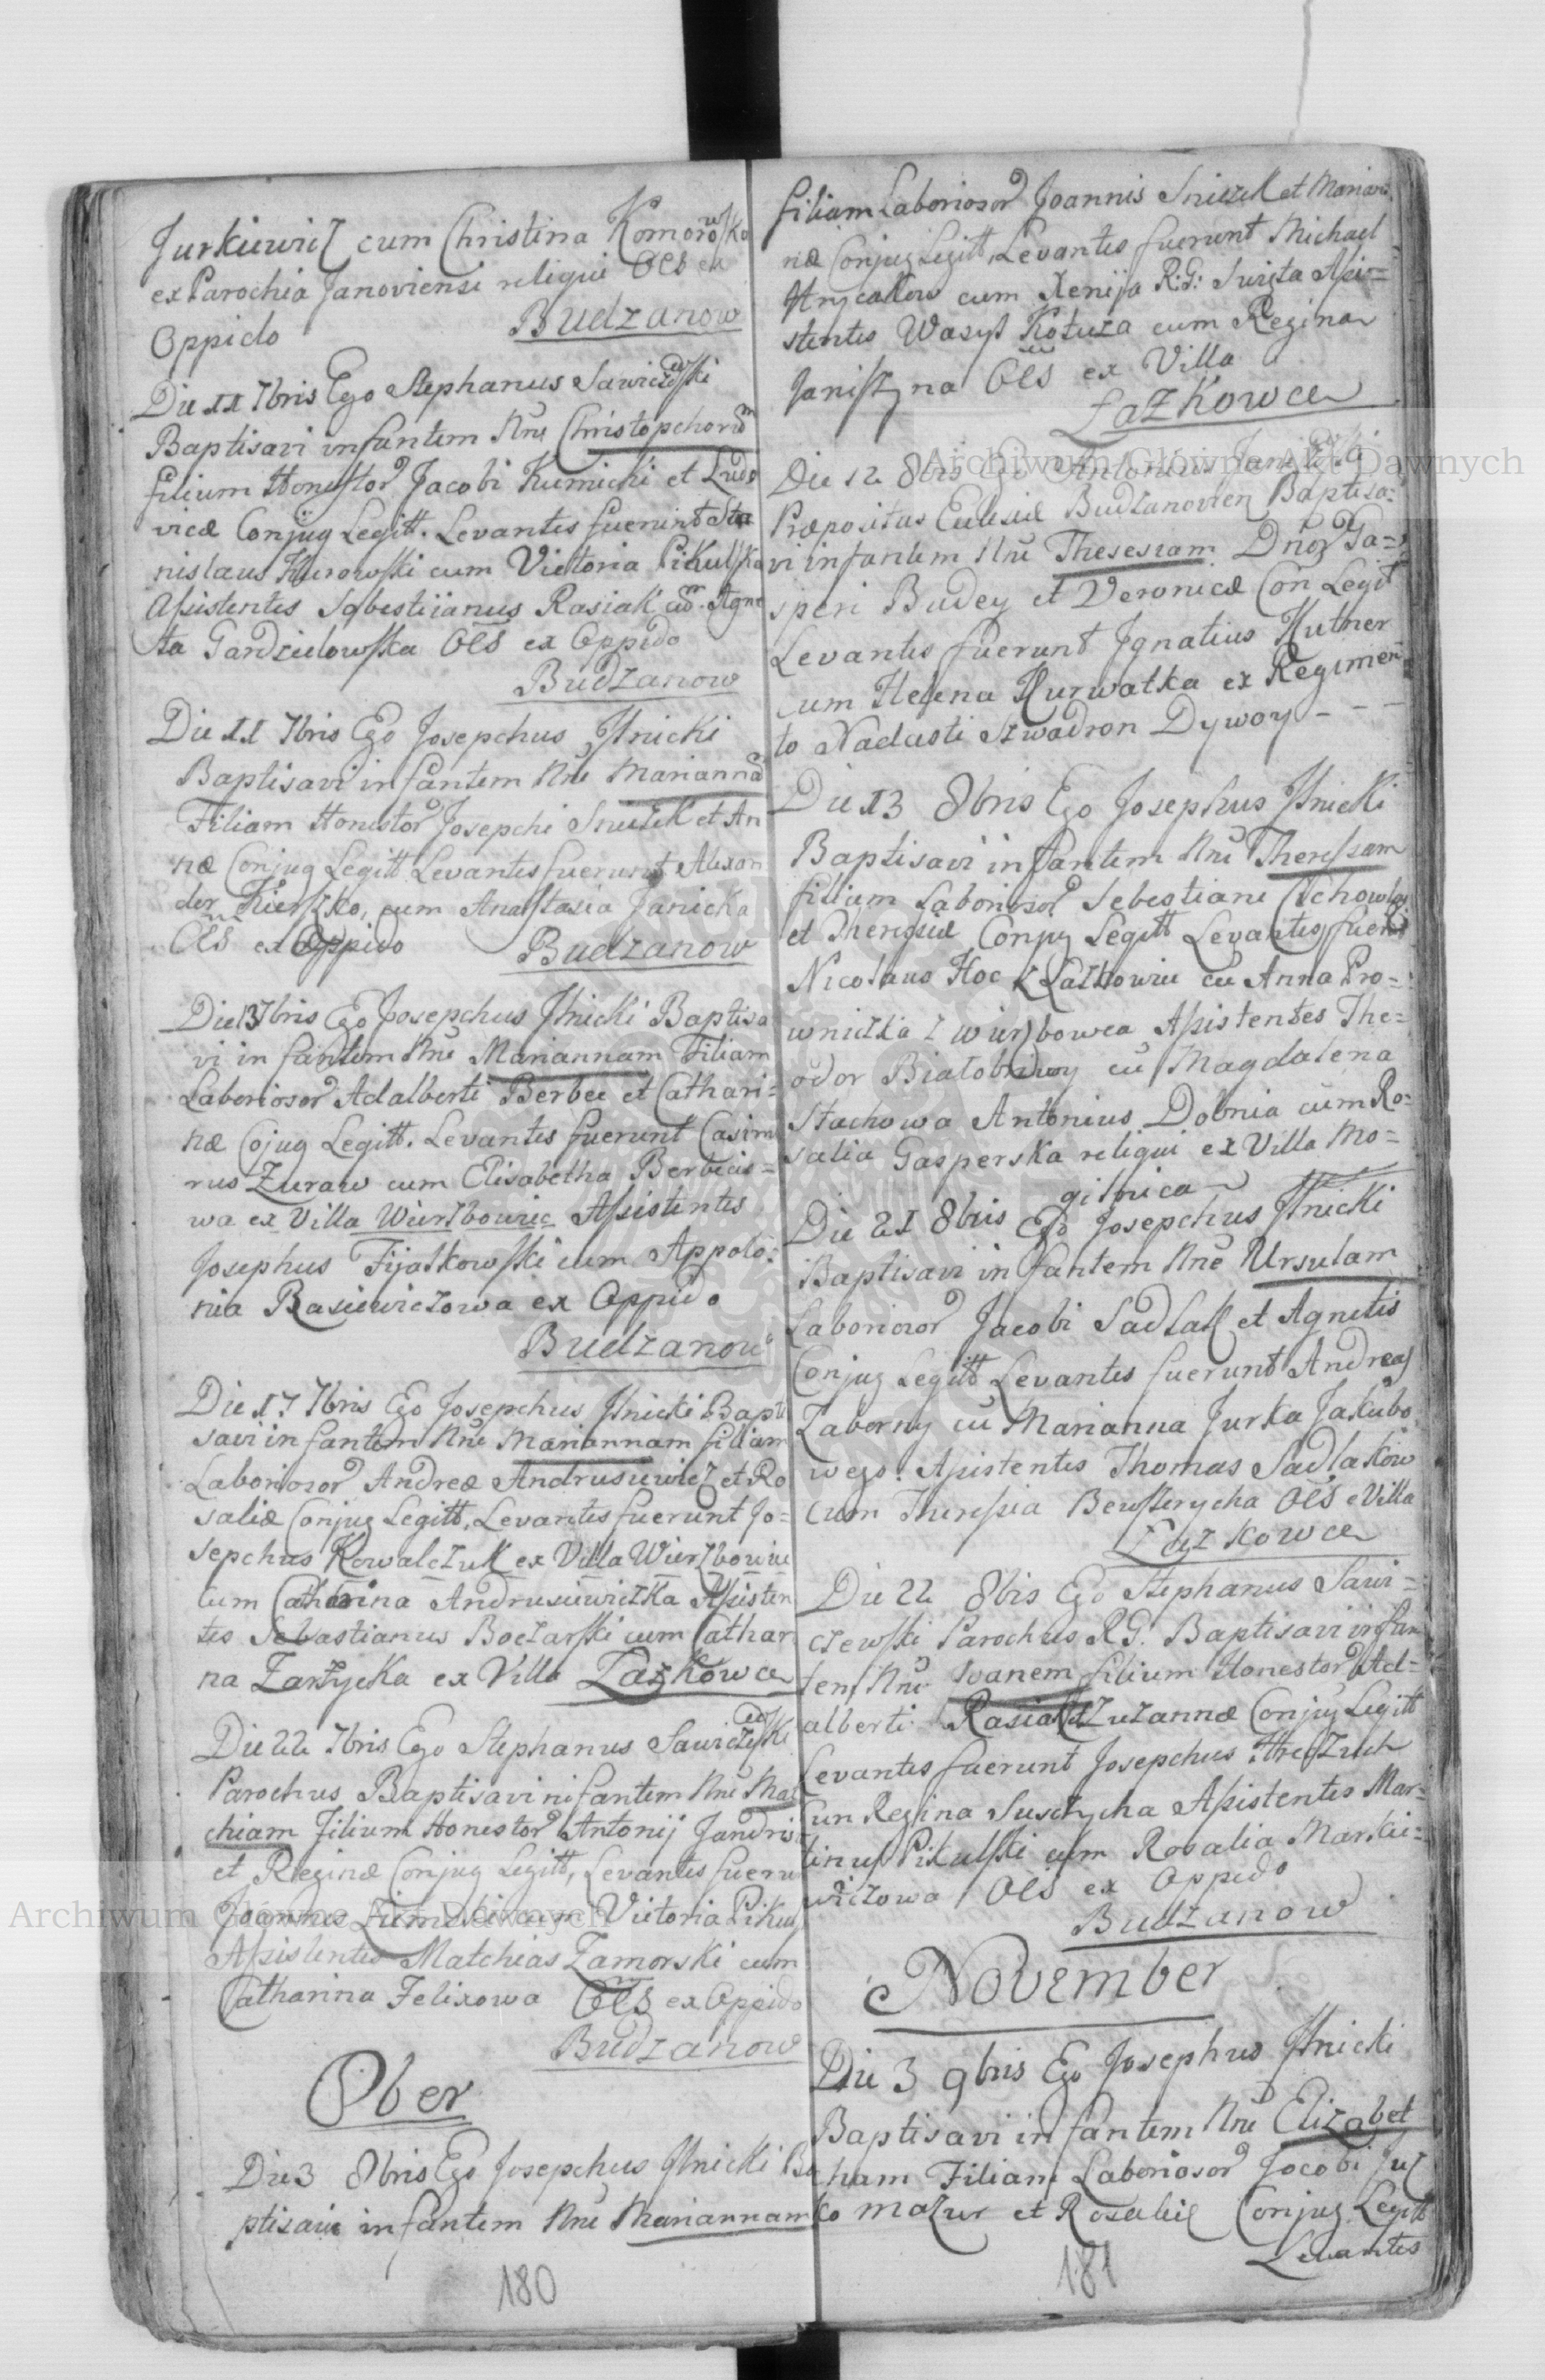 Jurkiewicz cum Christina Komorowska
ex Parochia Janoviensi reliqui Oēs ex
Oppido Budzanow
Die 11 7bris Ego Stephanus Sawiczewski
Baptisavi infantem Nne Christopchorum
filium Honestor Jacobi Kumicki et Ludo
vicæ Conjug Legitt. Levantes fuerunt Sta
nislaus Kurowski cum Victoria Pikulska
Assistentes Sebestiianus Rasiak cum Agne
ta Gardzielowska Oēs ex Oppido
Budzanow
Die 11 7bris Ego Josepchus Ilnicki
Baptisavi infantem Nne Mariannam
Filiam Honestor Josepchi Sniezek et An
næ Conjug Legitt Levantes fuerunt Alexan
der Kierszko, cum Anastasia Janicka
Oēs ex Oppido Budzanow
Die 13 7bris Ego Josepchus Ilnicki Baptisa
vi infantem Nne Mariannam Filiam
Laboriosor Adalberti Berbec et Cathari=
næ Cojug Legitt. Levantes fuerunt Casimi
rus Zuraw cum Elisabetha Berbecio=
wa ex Villa Wierzbowiec Assistentes
Josephus Fijałkowski cum Appolo=
nia Rasiewiczowa ex Oppido
Budzanow
Die 17 7bris Ego Josepchus Ilnicki Bapti
savi infantem Nne Mariannam filiam
Laboriosor Andreæ Andrusiewicz et Ro
saliæ Conjug Legitt, Levantes fuerunt Jo=
sepchus Kowalczuk ex Villa Wierzbowiec
cum Catharina Andrusiewiczka Assisten
tes Sebastianus Boczarski cum Cathari
na Zarzycka ex Villa Łaszkowce
Die 22 7bris Ego Stephanus Sawiczewski
Parochus Baptisavi infantem Nne Mat
chiam Filium Honestor Antonij Jandris
et Reginæ Conjug Legitt, Levantes fuerunt
Joannes Ziemski cum Victoria Pikuls
Assistentes Matchias Zamorski cum
Catharina Felixowa Oēs ex Oppido
Budzanow
8ber
Die 3 8bris Ego Josepchus Ilnicki Ba
ptisavi infantem Nne Mariannam
180
filiam Laboriosor Joannis Sniezek et Marian
næ Conjug Legitt, Levantes fuerunt Michael
cum Xenija R: G: Swista Assi=
stentes Wasyl Kotuza cum Regina
Janiszyna Oēs ex Villa
Łazkowce
Die 12 8bris Ego Antonius Janiszewski
Præpositus Eclesiæ Budzanovien Baptisa=
vi infantem Nne Theresiam Dnor Ga=
speri Budey et Veronicæ Con Legit
Levantes fuerunt Ignatius Hutner
cum Helena Hurwatka ex Regimen
to Nadasti Szwadron Dywoy - - -
Die 13 8bris Ego Josephus Ilnicki
Baptisavi infantem Nne Theressam
filiam Laboriosor Sebestiani
et Theressiæ Conjug Legitt Levantes fuerunt
Nicolaus Hoc z Łaskowiec cu Anna Pro=
wniczka z Wierzbowca Assistentes The=
odor Białobrdwy cu Magdalena
Stachowa Antonius Dobnia cum Ro=
salia Gasperska reliqui ex Villa Mo=
gilnica
Die 21 8bris Ego Josepchus Ilnicki
Baptisavi infantem Nne Ursulam
Laboriosor Jacobi Sadlak et Agnetis
Conjug Legitt Levantes fuerunt Andreas
Zaborny cu Marianna Jurka Jakubo
wego. Assistentes Thomas Sadlakow
cum Theressia Oēs e Villa
Łazkowce
Die 22 8bis Ego Stephanus Sawi=
czewski Parochus R G. Baptisavi infan
tem Nne Ivanem filium Honestor Ad=
alberti Rasiak et Zuzannæ Conjug Legitt
Levantes fuerunt Josepchus Hreczuch
cun Regina Assistentes Mar=
tinus Pikulski cum Rosalia Markie=
wiczowa Oēs ex Oppido
Budzanow
November
Die 3 9bris Ego Josephus Ilnicki
Baptisavi infantem Nne Elizabet
ham Filiam Laboriosor Jocobi Juz
ko Mazur et Rosaliæ Conjug Legitt
Levantes
181
Archiwum Główne Akt Dawnych
Archiwum Główne Akt Dawnych